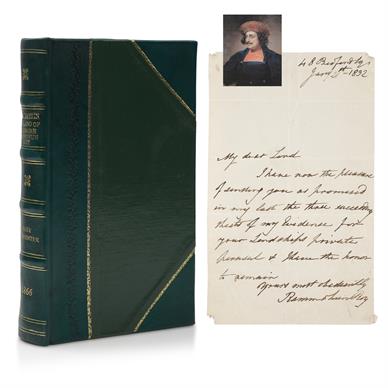 48 Bedford Sq
1832
My dear Lord
I have now the pleasure
of sending you as promised
in my last the three succeeding
sheets of my Evidence for
your Lordships private
perusal & I have the honor
to remain
Yours most obediently
Rammohun Roy
1866